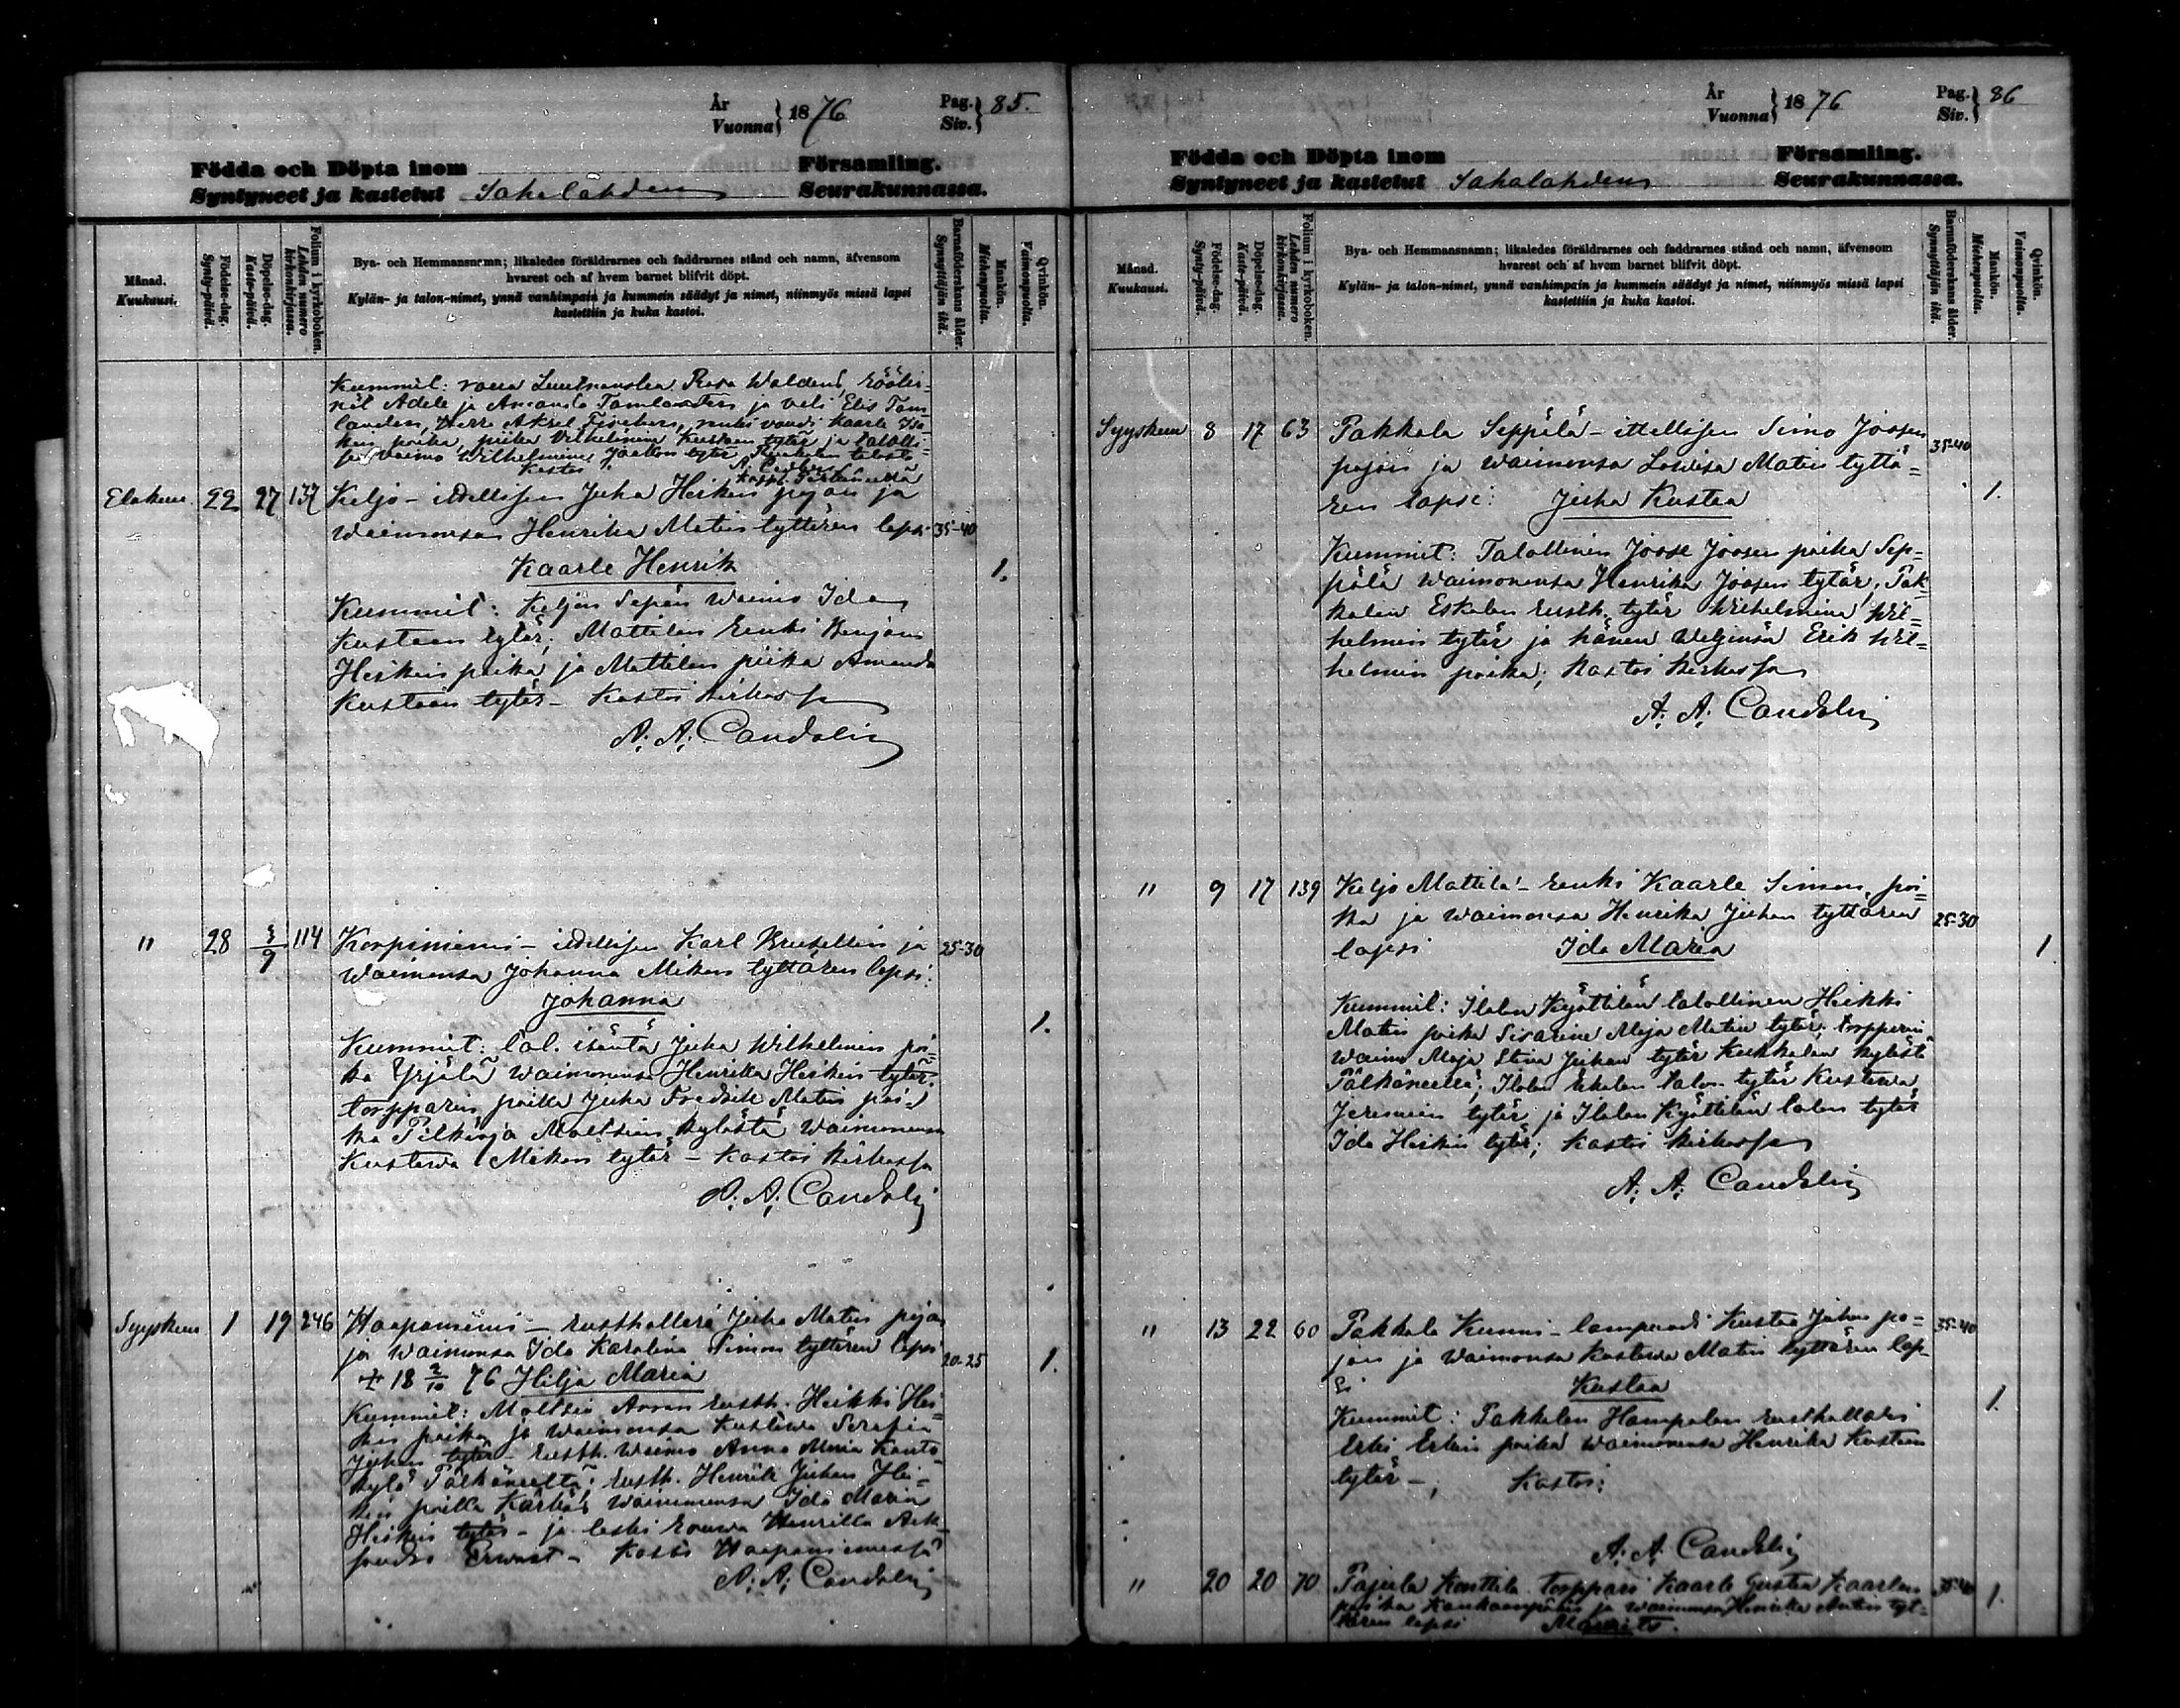 År
Vuonna } 1876
Pag.
Siv. } 85.
Födda och Döpta inom Församling.
Syntyneet ja kastetut Sahalahden Seurakunnassa.
Månad.
Kuukausi.
Födelse-dag.
Synty-päivä.
Döpelse-dag.
Kaste-päivä.
Folium i kyrkoboken.
Lehden numero kirkonkirjassa.
Bya- och Hemmansnamn; likaledes föräldrarnes och faddrarnes stånd och namn, äfvensom
hvarest och af hvem barnet blifvit döpt.
Kylän- ja talon-nimet, ynnä vanhimpain ja kummein säädyt ja nimet, niinmyös missä lapsi
kastettiin ja kuka kastoi.
Barnaföderskans ålder.
Synnyttäjän ikä.
Mankön.
Miehenpuolta.
Qvinkön.
Vaimonpuolta.
Kummit: Rosa
Adele ja Amanda ja veli Elis Tam
landen, Herra Aksel Kaarle
poika, piika Vilhelmina Kustaan tytär ja talolli
sen vaimo Wilhelmina tytär
Kastoi
Elokuu 22 27 137 Keljo - itellisen Juha Heikin pojan ja
waimonsa Henrika Matin tyttären lapsi 35-40
Kaarle Henrik 1.
Kummit: Keljon Sepän waimo Ida
Kustaan tytär; Mattilan renki Benjam
Heikin poika ja Mattilan piika Amanda
Kustaan tytär - Kastoi kirkossa
A. A. Candolin
" 28 3/9 114 Korpiniemi - itellisen Karl ja 25-30
waimonsa Johanna Mikon tyttären lapsi:
Johanna 1.
Kummit: tal. isäntä Juha Wilhelmin poi=
ka Yrjälä waimonensa Henrika Heikin tytär.
torpparin poika Juha Fredrik Matin poi=
ka Pilkinjä Moltsian kylästä waimonensa
Kustawa Mikon tytär - Kastoi kirkossa
A. A. Candolin
Syyskuu 1 19 246 Haapaniemi - rusthollari Juha Matin pojan
ja waimonsa Ida Karolina Simon tyttären lapsi 20-25 1.
18 2/10 76 Hilja Maria
Kummit: Moltsia rusth. Heikki Hei=
kin poika ja waimonsa Kustawa Serafia
Juhan tytär - rusth. waimo Anna Maria Kanto
kylä Pälkäneeltä; rusth. Henrik Juhan Hei=
kin poika Kärki waimonensa Ida Maria
Heikin tytär - ja leski rouwa Henrika
- Kastoi Haapaniemessä
A. A. Candolin
År
Vuonna } 1876
Pag.
Siv. } 86
Födda och Döpta inom Församling.
Syntyneet ja kastetut Sahalahden Seurakunnassa.
Månad.
Kuukausi.
Födelse-dag.
Synty-päivä.
Döpelse-dag.
Kaste-päivä.
Folium i kyrkoboken.
Lehden numero kirkonkirjassa.
Bya- och Hemmansnamn; likaledes föräldrarnes och faddrarnes stånd och namn, äfvensom
hvarest och af hvem barnet blifvit döpt.
Kylän- ja talon-nimet, ynnä vanhimpain ja kummein säädyt ja nimet, niinmyös missä lapsi
kastettiin ja kuka kastoi.
Barnaföderskans ålder.
Synnyttäjän ikä.
Mankön.
Miehenpuolta.
Qvinkön.
Vaimonpuolta.
Syyskuu 8 17 63 Pakkala Seppälä - itellisen Simo Joosen 35-40
pojan ja waimonsa Lowisa Matin tyttä=
ren lapsi: Juha Kustaa 1.
Kummit: Talollinen Joose Joosen poika Sep=
pälä waimonensa Henrika Joosen tytär, Pak=
kalan Eskolan rusth. tytär Wilhelmina Wil=
helmin tytär ja hänen weljensä Erik Wil=
helmin poika; Kastoi kirkossa
A. A. Candolin
" 9 17 139 Keljo Mattila - renki Kaarle Simon poi=
ka ja waimonsa Henrika Juhan tyttären 25-30
lapsi Ida Maria 1
Kummit: Ilolan Kyöttilän talollinen Heikki
Matin poika Sisarine Maja Matin tytär; torpparin
waimo Maja Stina Juhan tytär Kukkolan kylästä
Pälkäneellä; Ilolan talon tytär Kustawa
Jeremian tytär ja Ilolan Kyöttilän talon tytär
Ida Heikin tytär; Kastoi kirkossa
A. A. Candolin
" 13 22 60 Pakkala Kunni - lampuodi Kustaa Juhan po= 35-40
jan ja waimonsa Kustawa Matin tyttären lap-
si Kustaa 1.
Kummit: Pakkalan Hampalan rusthollari
Erki Erkin poika waimonensa Henrika Kustaan
tytär -; Kastoi:
A. A. Candolin
" 20 20 70 Pajula Konttila torppari Kaarle Gustaa Kaarlen 35-40 1.
poika ja waimonsa Henrika Antin tyt=
tären lapsi Mauritz.